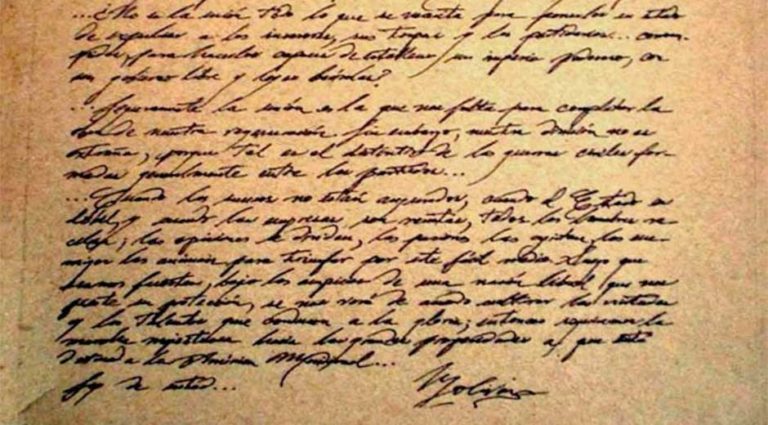 ...¿No es la unión todo lo que se necesita para ponerlos en estado
de expulsar a los
españoles, sus tropas y los partidarios... 
para hacerlos capaces de establecer un imperio poderoso, con
un gobierno libre y leyes
...Seguramente la unión es la que nos falta para completar la
obra de nuestra regeneración. Sin embargo, nuestra división no es
extraña, porque tal es el distintivo de las guerras civiles for-
madas generalmente entre los partidos...
...Cuando los sucesos no están asegurados, cuando el Estado es
débil, y cuando las empresas son remotas, todos los hombres va-
cilan; las opiniones se dividen, las pasiones las agitan, los ene-
migos las animan para triunfar por este fácil medio. Luego que
seamos fuertes, bajo los auspicios de una nación liberal que nos
preste su protección, se nos verá de acuerdo cultivar las virtudes
y los talentos que conducen a la gloria; entonces seguiremos la
marcha majestuosa hacia las grandes prosperidades a que está
destinada la América Meridional...
Soy de usted... Bolívar